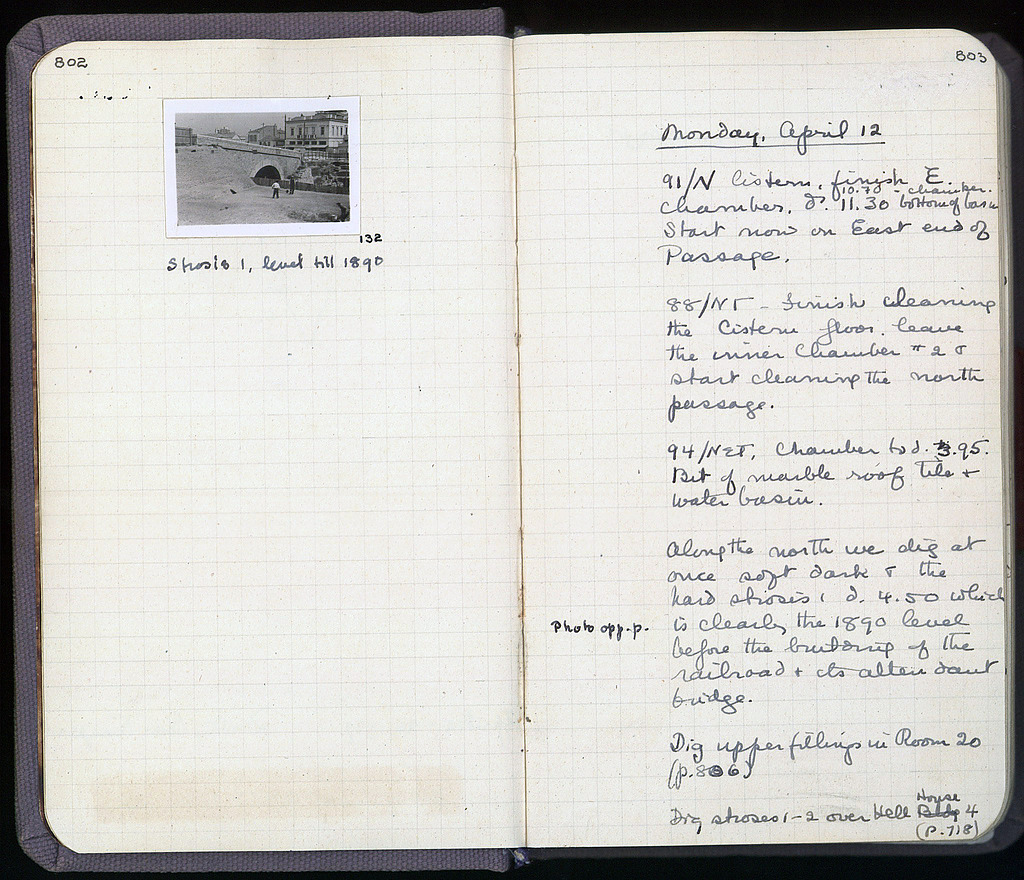 802
132
Strosis 1, level till 1890
803
Monday, April 12
91/N Cistern, finish E.
10.70 - chamber.
chamber, d. 11.30 bottom of basin
Start now on East end of
Passage.
88/NT - Finish cleaning
the Cistern floor. leave
the inner Chamber #2 &
start cleaning the north
passage.
94/NET, Chamber to d. 3.95.
Bit of marble roof tile +
water basin.
Along the north we dig at
once soft dark & the
hard strosis 1 d. 4.50 which
is clearly the 1890 level
before the building of the
railroad + its attendant
bridge.
Photo opp. p.
Dig upper fillings in Room 20
(p. 806)
House
Dig stroses 1-2 over Hell Bldg 4
(P. 718)